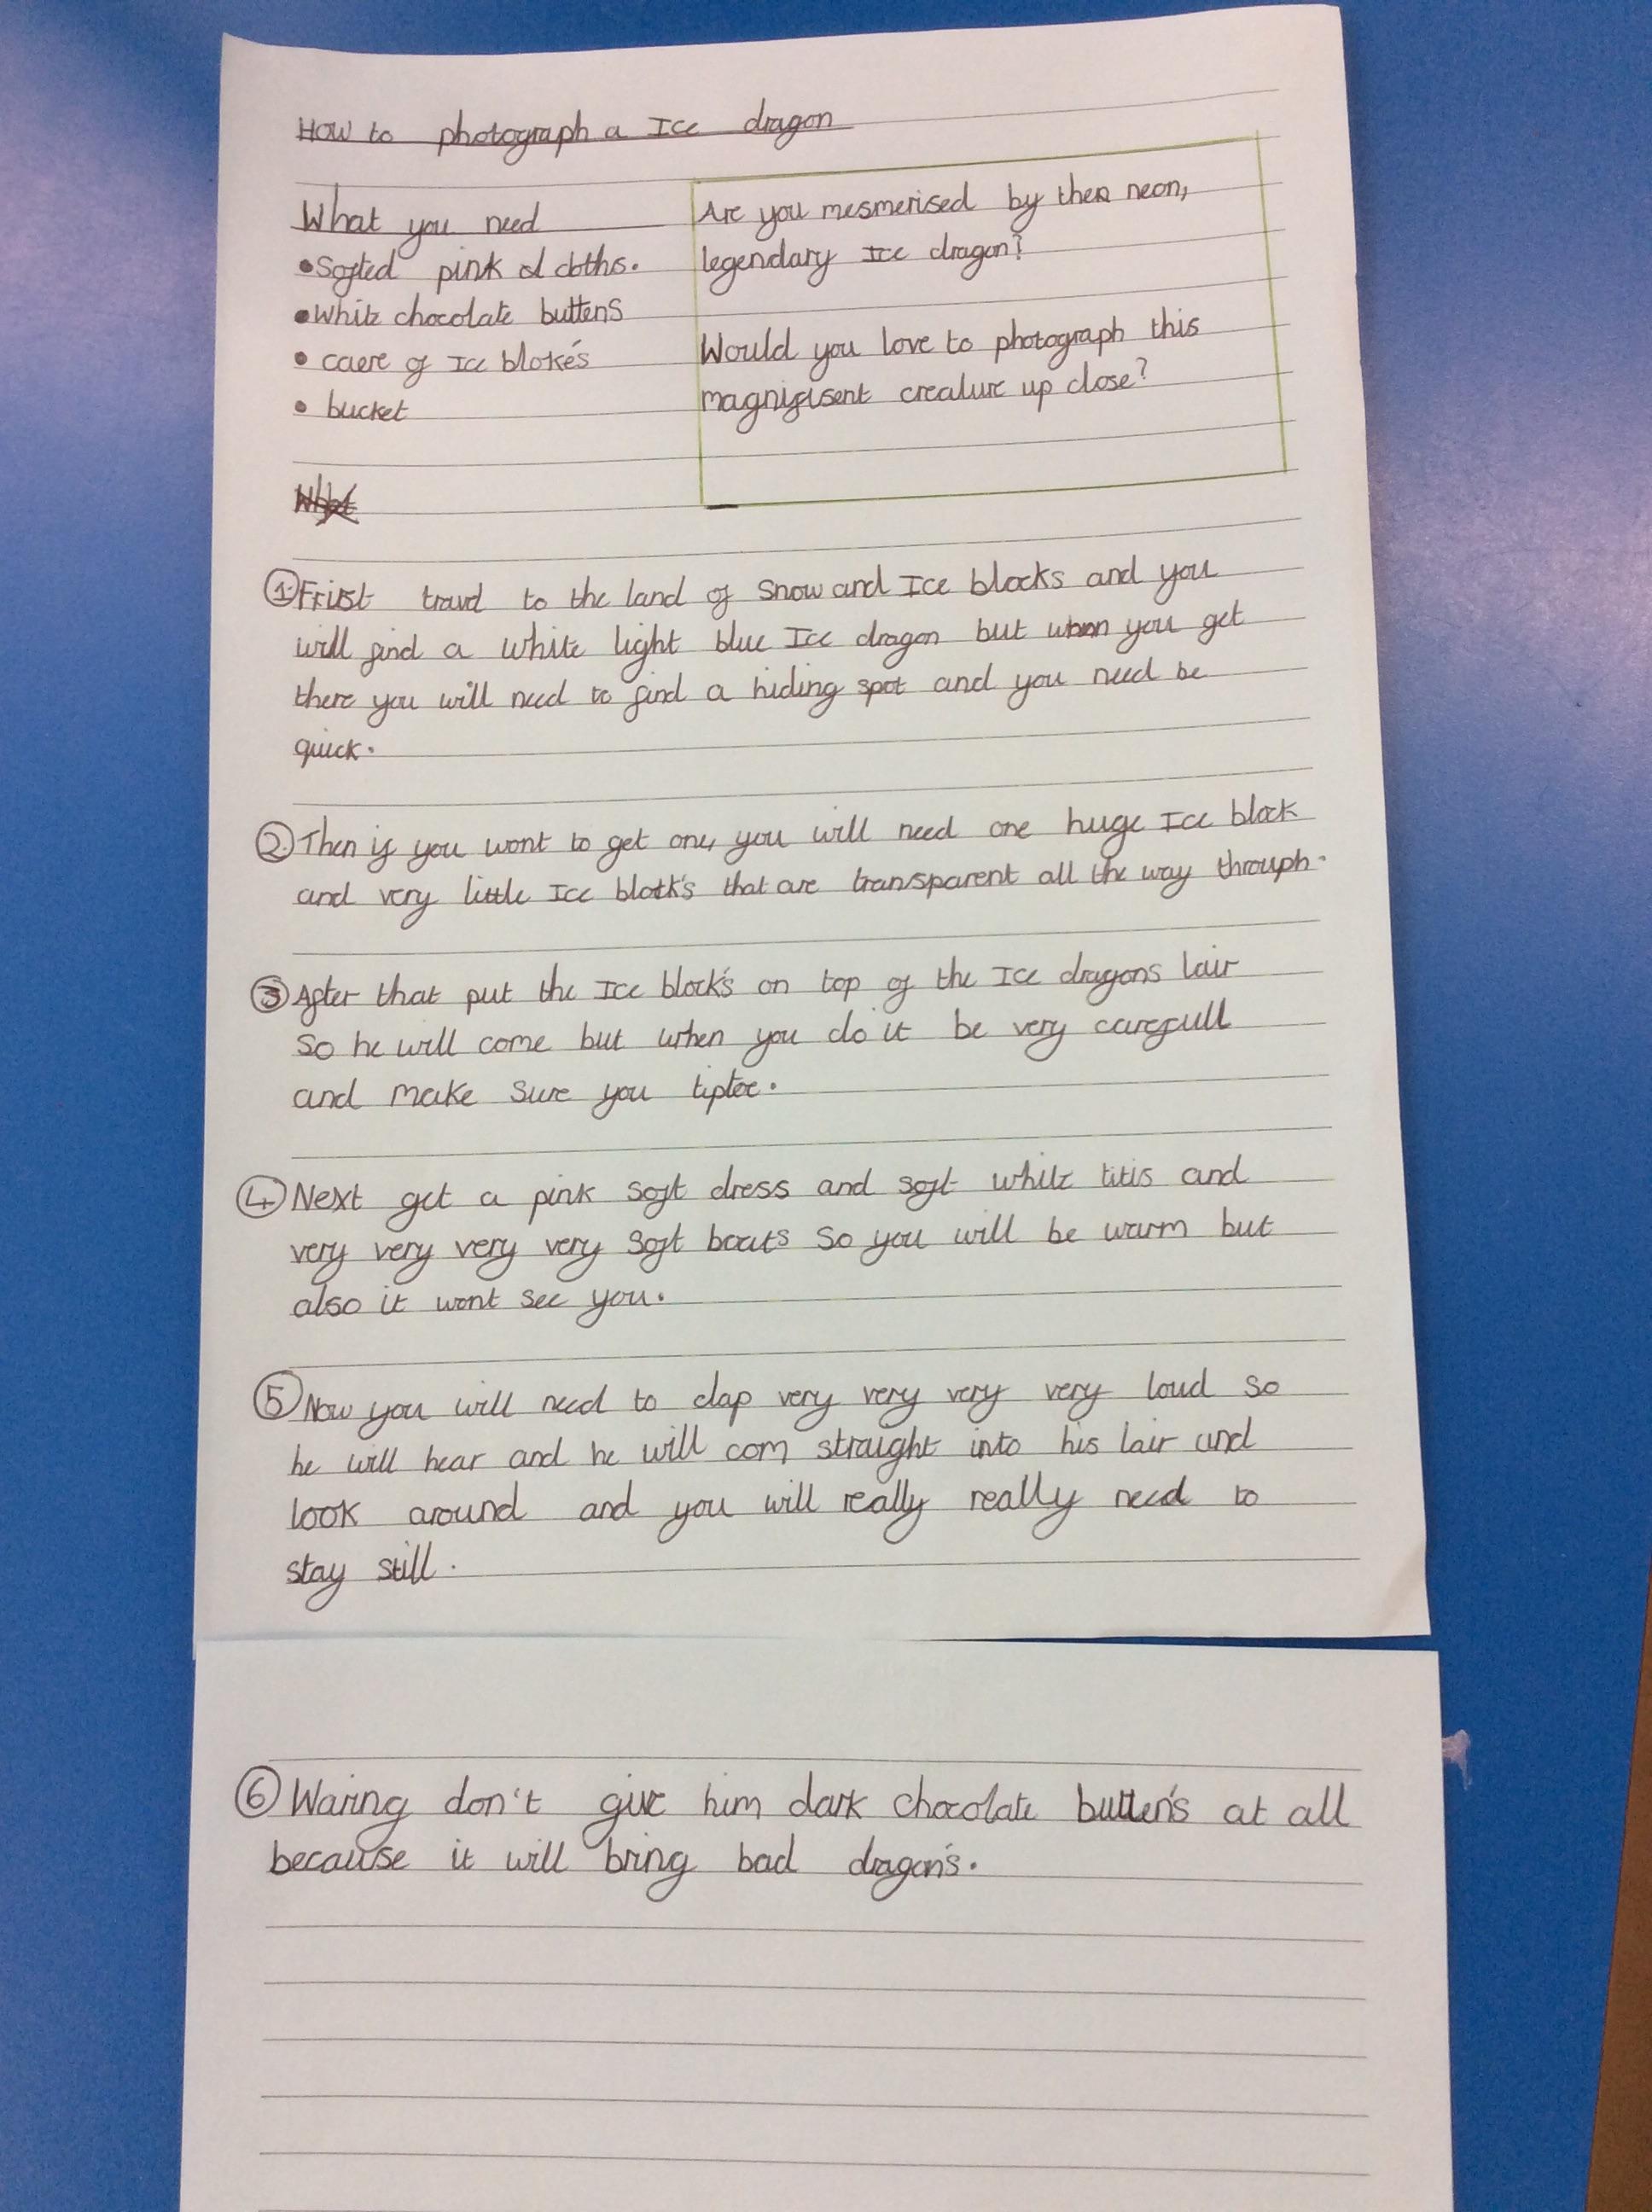 How to photograph a Ice dragon
What you need
•Softed pink cloths.
•White chocolate buttens
• caere of Ice blokés
• bucket
Are you mesmerised by the neon,
legendary Ice dragon?
Would you love to photograph this
magnifisent creature up close?
① Frist travel to the land of snow and Ice blocks and you
will find a white light blue Ice dragon but when you get
there you will need to find a hiding spot and you need be
quick.
② Then if you wont to get one, you will need one huge Ice block
and very little Ice block's that are transparent all the way through.
③ After that put the Ice block's on top of the Ice dragons lair
So he will come but when you do it be very carefull
and make sure you tiptoe.
④ Next get a pink soft dress and soft white titis and
very very very very soft boots so you will be warm but
also it wont see you.
⑤ Now you will need to clap very very very very loud so
he will hear and he will com straight into his lair and
look around and you will really really need to
stay still.
⑥ Waring don't give him dark chocolate butten's at all
because it will bring bad dragon's.